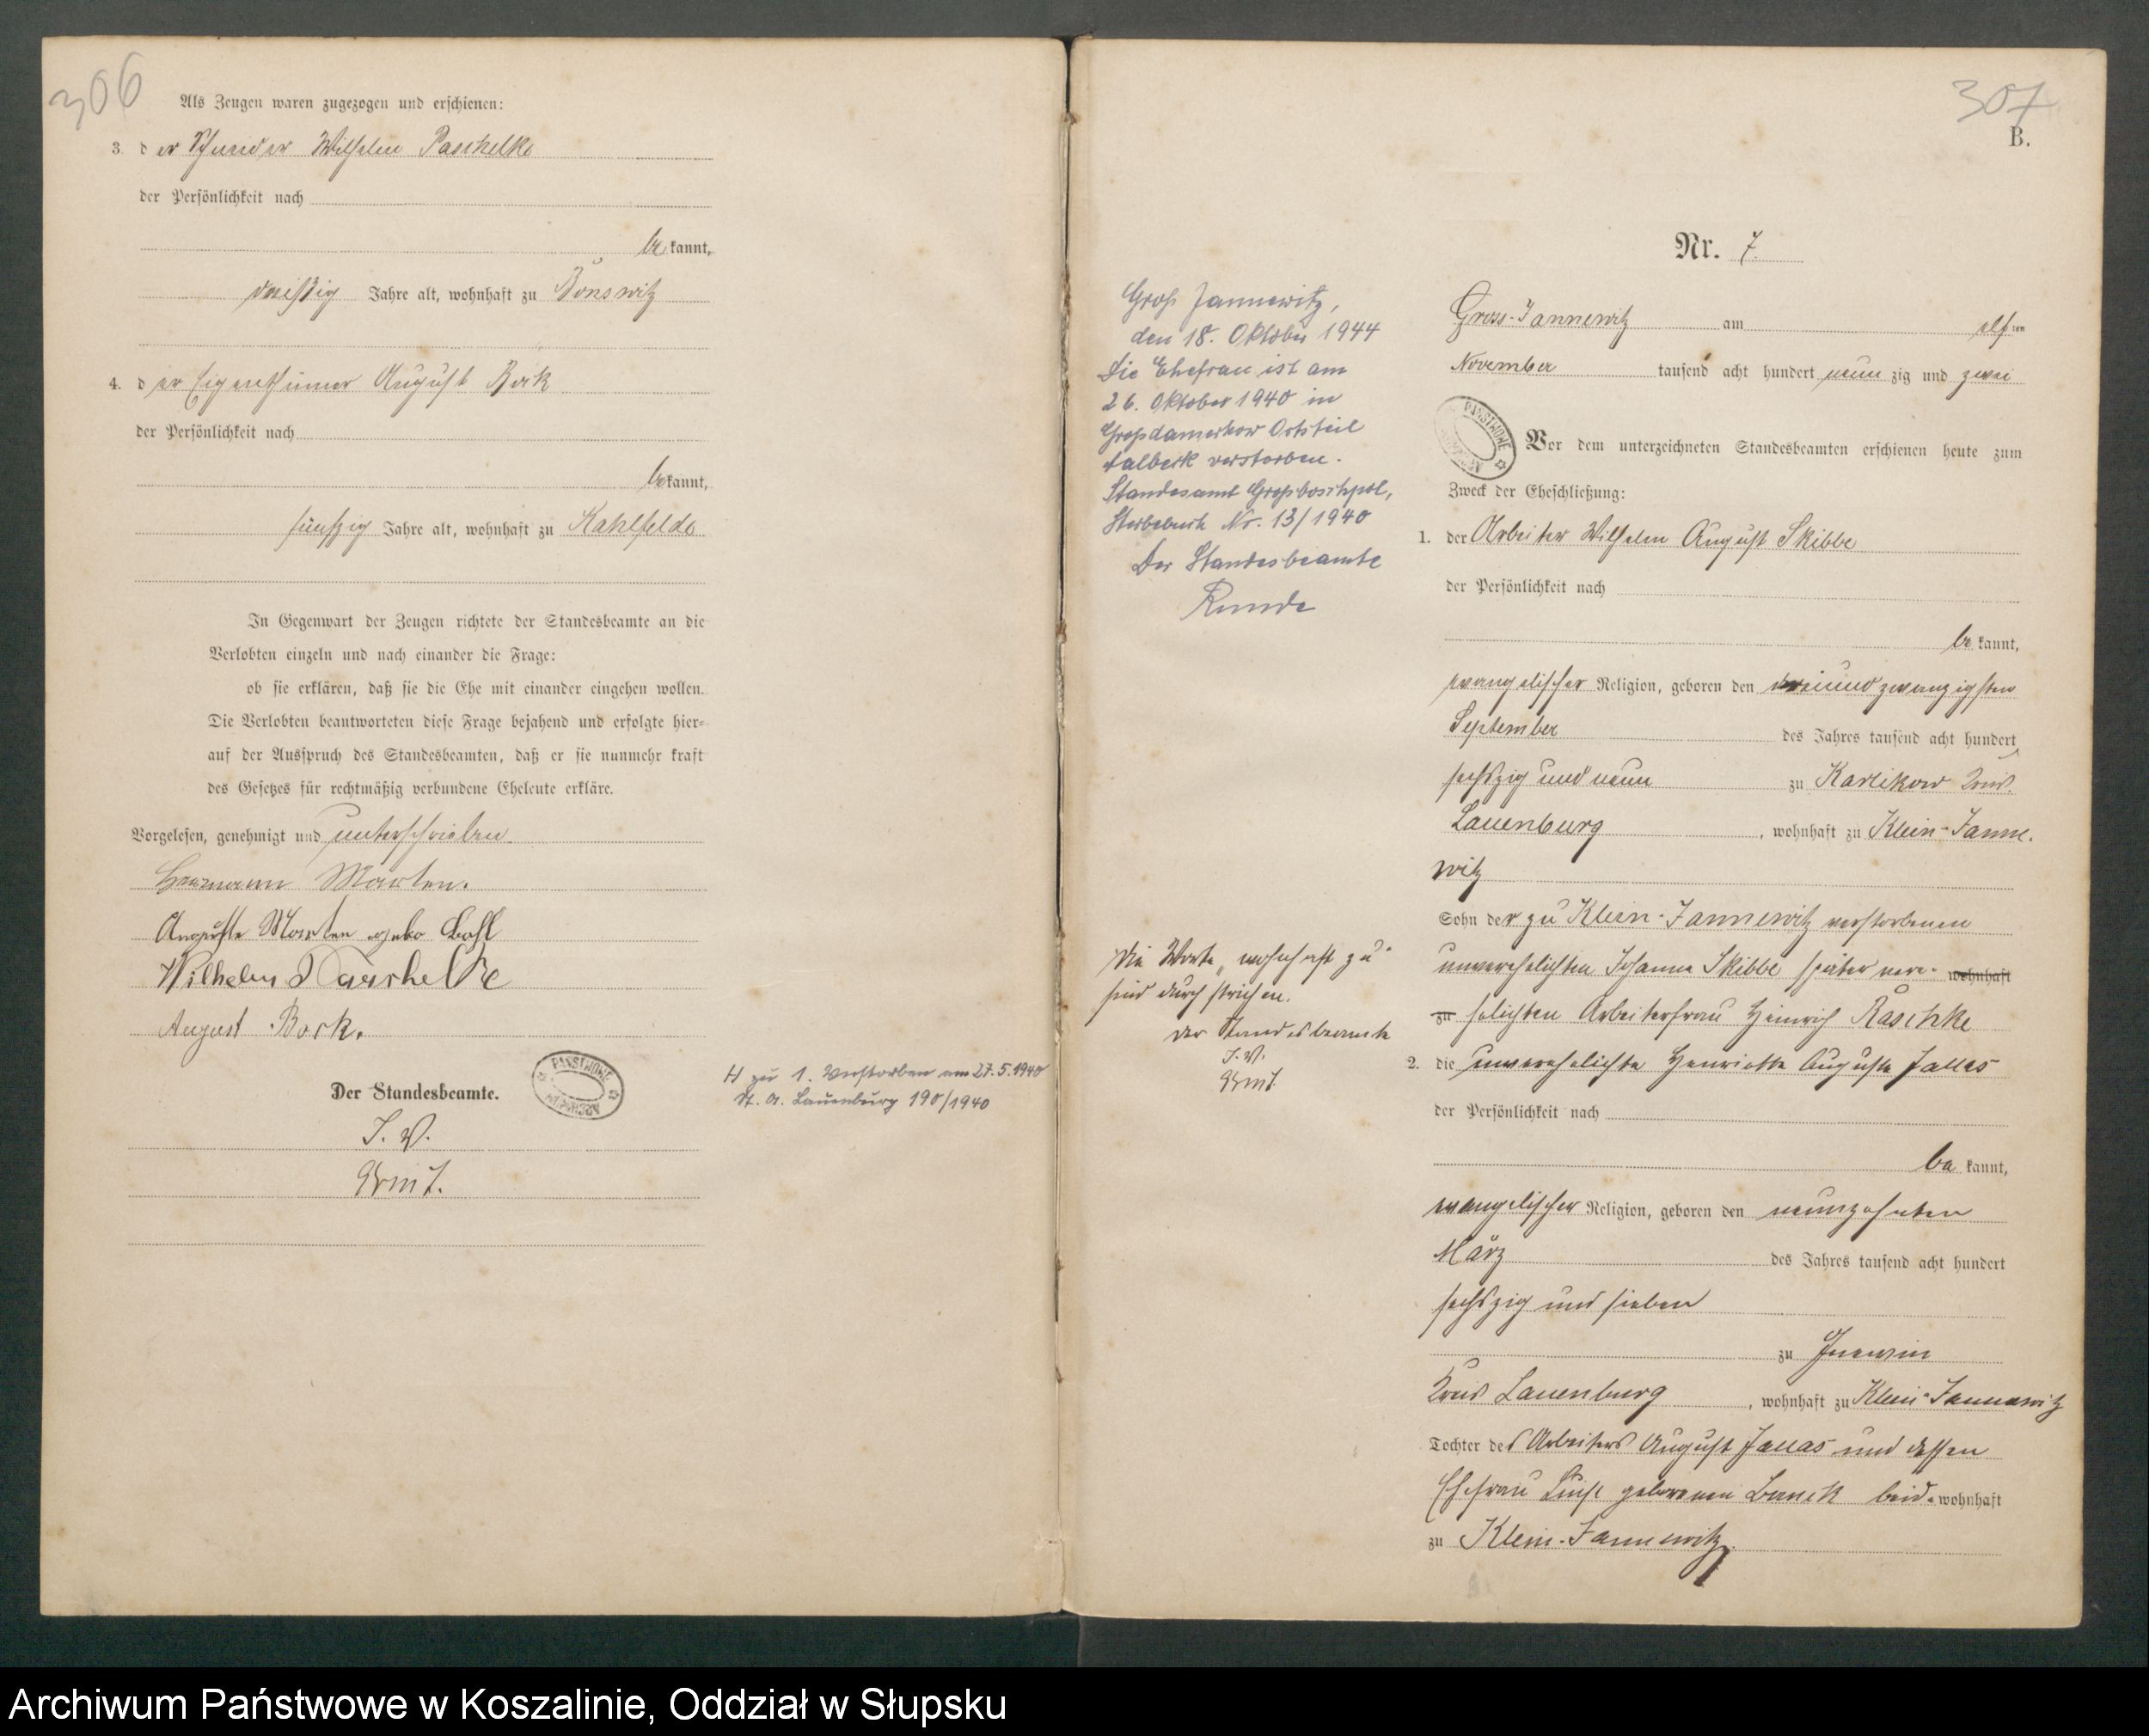 306
Als Zeugen waren zugezogen und erschienen:
3. der Schneider Wilhelm Paschelke
der Persönlichkeit nach
be kannt,
dreißig Jahre alt, wohnhaft zu Bonswitz
4. der Eigenthümer August Bork
der Persönlichkeit nach
be kannt,
fünfzig Jahre alt, wohnhaft zu Kahlfelde
In Gegenwart der Zeugen richtete der Standesbeamte an die
Verlobten einzeln und nach einander die Frage:
ob sie erklären, daß sie die Ehe mit einander eingehen wollen.
Die Verlobten beantworteten diese Frage bejahend und erfolgte hier-
auf der Ausspruch des Standesbeamten, daß er sie nunmehr kraft
des Gesetzes für rechtmäßig verbundene Eheleute erkläre.
Vorgelesen, genehmigt und unterschrieben
Hermann Marten.
Auguste Marten gebo
Wilhelm Paschelke
August Bork.
Der Standesbeamte.
I. V.
H zu 1. Verstorben am 27.5.1940
St. A. Lauenburg 190/1940
307
B.
Nr. 7.
Gross-Jannewitz am elften
November tausend acht hundert neun zig und zwei
Vor dem unterzeichneten Standesbeamten erschienen heute zum
Zweck der Eheschließung:
1. der Arbeiter Wilhelm August Skibbe
der Persönlichkeit nach
be kannt,
evangelischer Religion, geboren den dreiundzwanzigsten
September des Jahres tausend acht hundert
sechszig und neun zu Karlikow Kreis
Lauenburg, wohnhaft zu Klein-Janne-
witz
Sohn der zu Klein-Jannewitz verstorbenen
unverehelichten Johanna Skibbe später vere- wohnhaft
zu helichten Arbeiterfrau Heinrich Raschke
2. die unverehelichte Henriette Auguste Jallas
der Persönlichkeit nach
be kannt,
evangelischer Religion, geboren den neunzehnten
März des Jahres tausend acht hundert
sechszig und sieben
zu Gnewin
Kreis Lauenburg, wohnhaft zu Klein-Jannewitz
Tochter des Arbeiters August Jallas und dessen
Ehefrau Luise geborenen beide wohnhaft
zu Klein-Jannewitz.
Groß Jannewitz,
den 18. Oktober 1944
Die Ehefrau ist am
26. Oktober 1940 in
Großdamerkow Ortsteil
verstorben.
Standesamt Großboschpol,
Sterbebuch Nr. 13/1940
Der Standesbeamte
Runde
Die Worte "wohnhaft zu"
sind durchstrichen.
Der Standesbeamte
I. V.
PAŃSTWOWE
Archiwum Państwowe w Koszalinie, Oddział w Słupsku